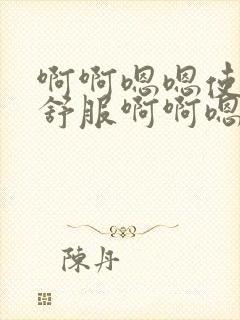 啊啊嗯嗯使
舒服啊啊嗯
陳丹